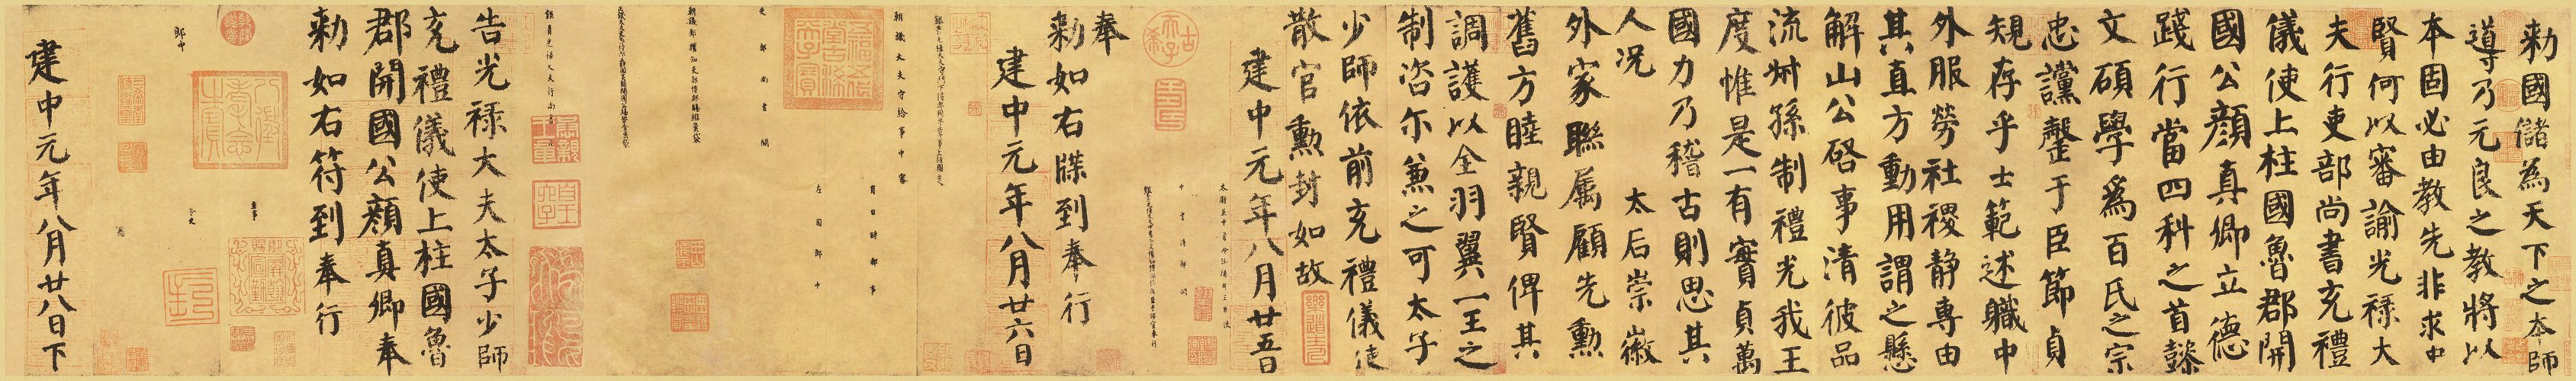 勅國儲為天下之本師
導乃元良之教將以
本固必由教先非求中
賢何以審諭光祿大
夫行吏部尚書充禮
儀使上柱國魯郡開
國公顏真卿立德
踐行當四科之首懿
文碩學為百氏之宗
忠讜罄于臣節貞
規存乎士範述職中
外服勞社稷静專由
其直方動用謂之懸
解山公啓事清彼品
流叔孫制禮光我王
度惟是一有實貞萬
國力乃稽古則思其
人況 太后崇徽
外家聯屬顧先勲
舊方睦親賢俾其
調護以全羽翼一王之
制咨尔兼之可太子
少師依前充禮儀使
散官勲封如故
建中元年八月廿五日
太尉兼中書令
中書侍郎 闕
奉
勅如右牒到奉行
建中元年八月廿六日
朝議大夫守給事中審
月日時都事
左司郎中
吏部尚書闕
告光祿大夫太子少師
充禮儀使上柱國魯
郡開國公顏真卿奉
勅如右符到奉行
郎中
建中元年八月廿八日下